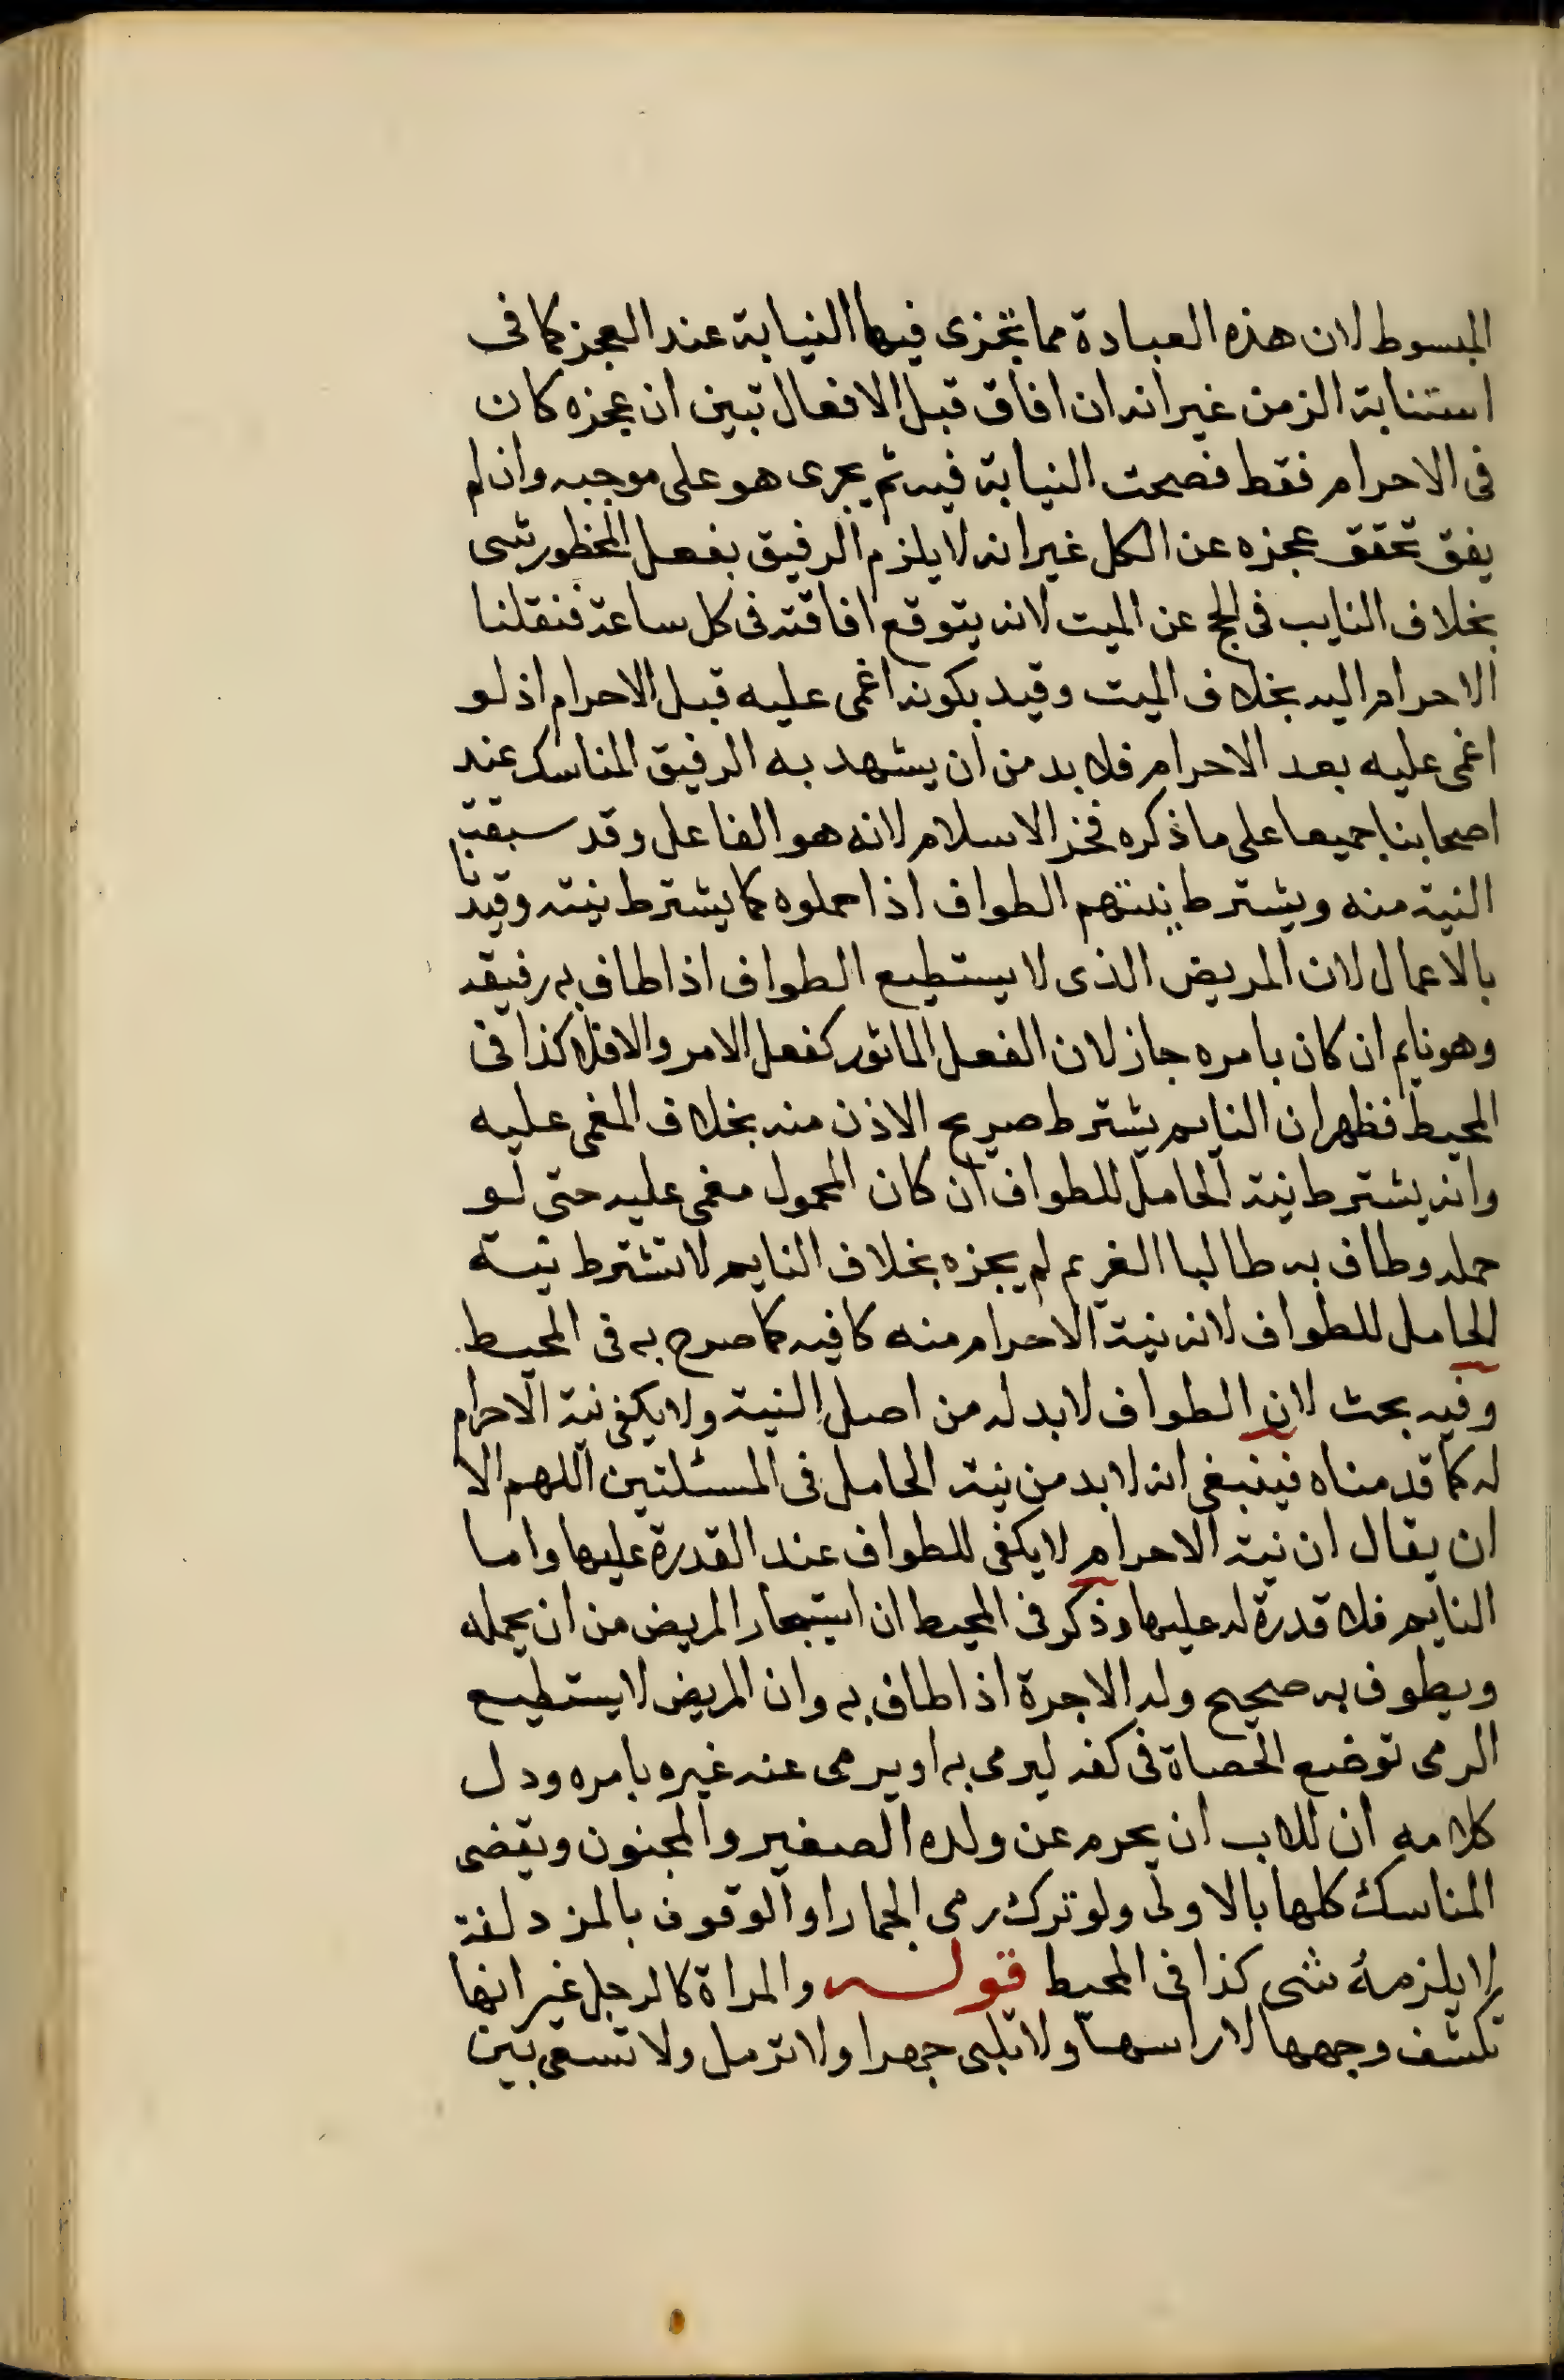 المبسوط لان هذه العبادة مما تجزى فيها النيابة عند العجز كما فى
استنابة الزمن غير انه ان افاق قبل الافعال تبين ان عجزه كان
فى الاحرام فقط فصحت النيابة فيه ثم يجرى هو على موجبه وان لم
يفق تحقق عجزه عن الكل غير انه لا يلزم الرفيق بفعل المحظور شى
بخلاف النايب فى الحج عن الميت لانه يتوقع افاقته فى كل ساعة فنقلنا
الاحرام اليه بخلاف الميت وقيد بكونه اغمى عليه قبل الاحرام اذ لو
اغمى عليه بعد الاحرام فلا بد من ان يشهد به الرفيق المناسك عند
اصحابنا جميعا على ما ذكره فخر الاسلام لانه هو الفاعل وقد سبقت
النية منه ويشترط نيتهم الطواف اذا حملوه كما يشترط نيته وقيدنا
بالاعمال لان المريض الذى لا يستطيع الطواف اذا طاف به رفيقه
وهو نايم ان كان بامره جاز لان الفعل الماثور كفعل الامر والا فلا كذا فى
المحيط فظهر ان النايم يشترط صريح الاذن منه بخلاف المغمى عليه
وانه يشترط نية الحامل للطواف ان كان المحمول مغمى عليه حتى لو
حمله وطاف به طالبا الغريم لم يجزه بخلاف النايم لا تشترط نية
الحامل للطواف لانه نية الاحرام منه كافيه كما صرح به فى المحيط
وفيه بحث لان الطواف لا بد له من اصل النية ولا يكفى نية الاحرام
له كما قدمناه فينبغى انه لا بد من نية الحامل فى المسئلتين اللهم الا
ان يقال ان نية الاحرام لا يكفى للطواف عند القدرة عليها واما
النايم فلا قدرة له عليها وذكر فى المحيط ان استيجار المريض من ان يحمله
ويطوف به صحيح وله الاجرة اذا طاف به وان المريض لا يستطيع
الرمى توضع الحصاة فى كفه ليرمى به او يرمى عنه غيره بامره ودل
كلامه ان للاب ان يحرم عن ولده الصغير والمجنون ويقضى
المناسك كلها بالاولى ولو ترك رمى الجمار او الوقوف بالمزدلفة
لا يلزمه شى كذا فى المحيط قوله والمراة كالرجل غير انها
تكشف وجهها لا راسها ولا تلبى جهرا ولا ترمل ولا تسعى بين